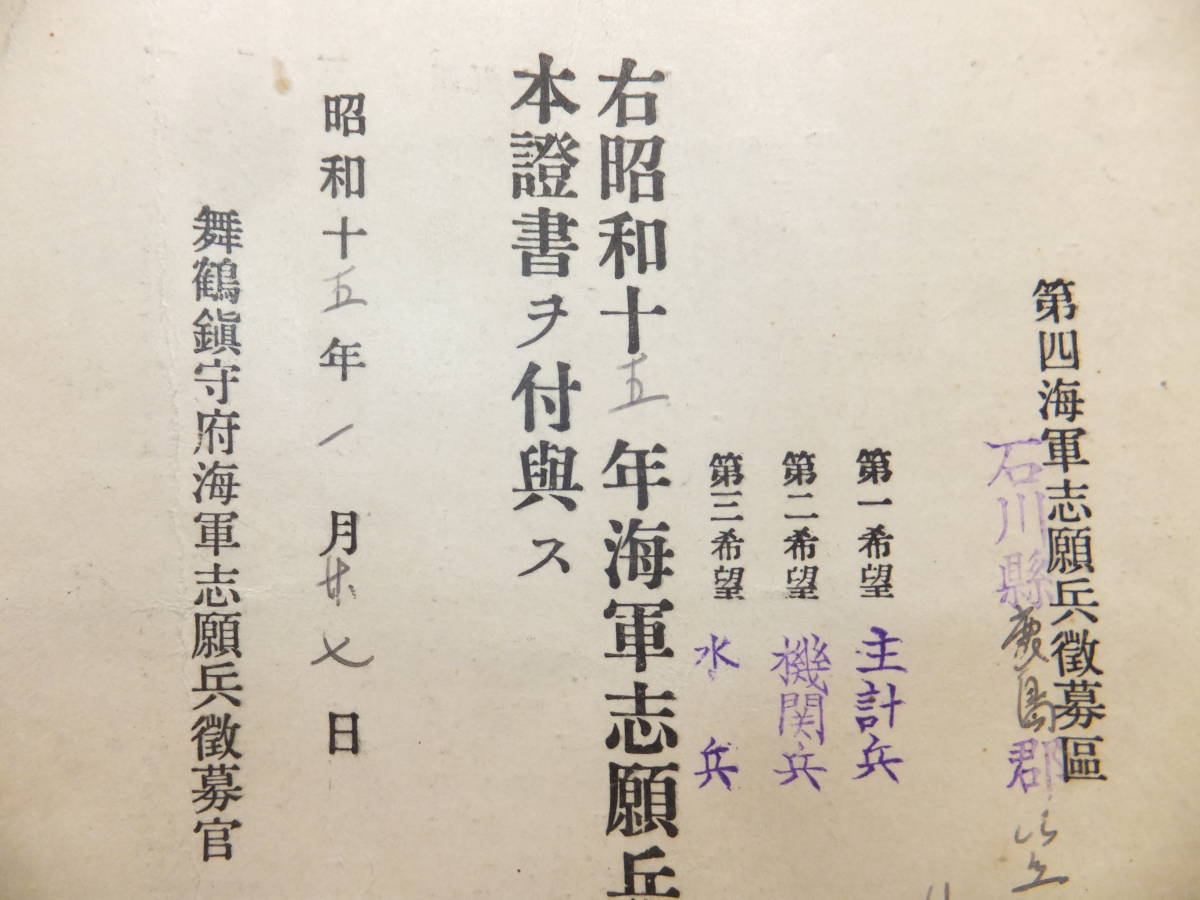 第四海軍志願兵徴募區
石川縣鹿島郡
第一希望 主計兵
第二希望 機関兵
第三希望 水兵
右昭和十五年海軍志願兵
本證書ヲ付與ス
昭和十五年一月廿七日
舞鶴鎮守府海軍志願兵徴募官